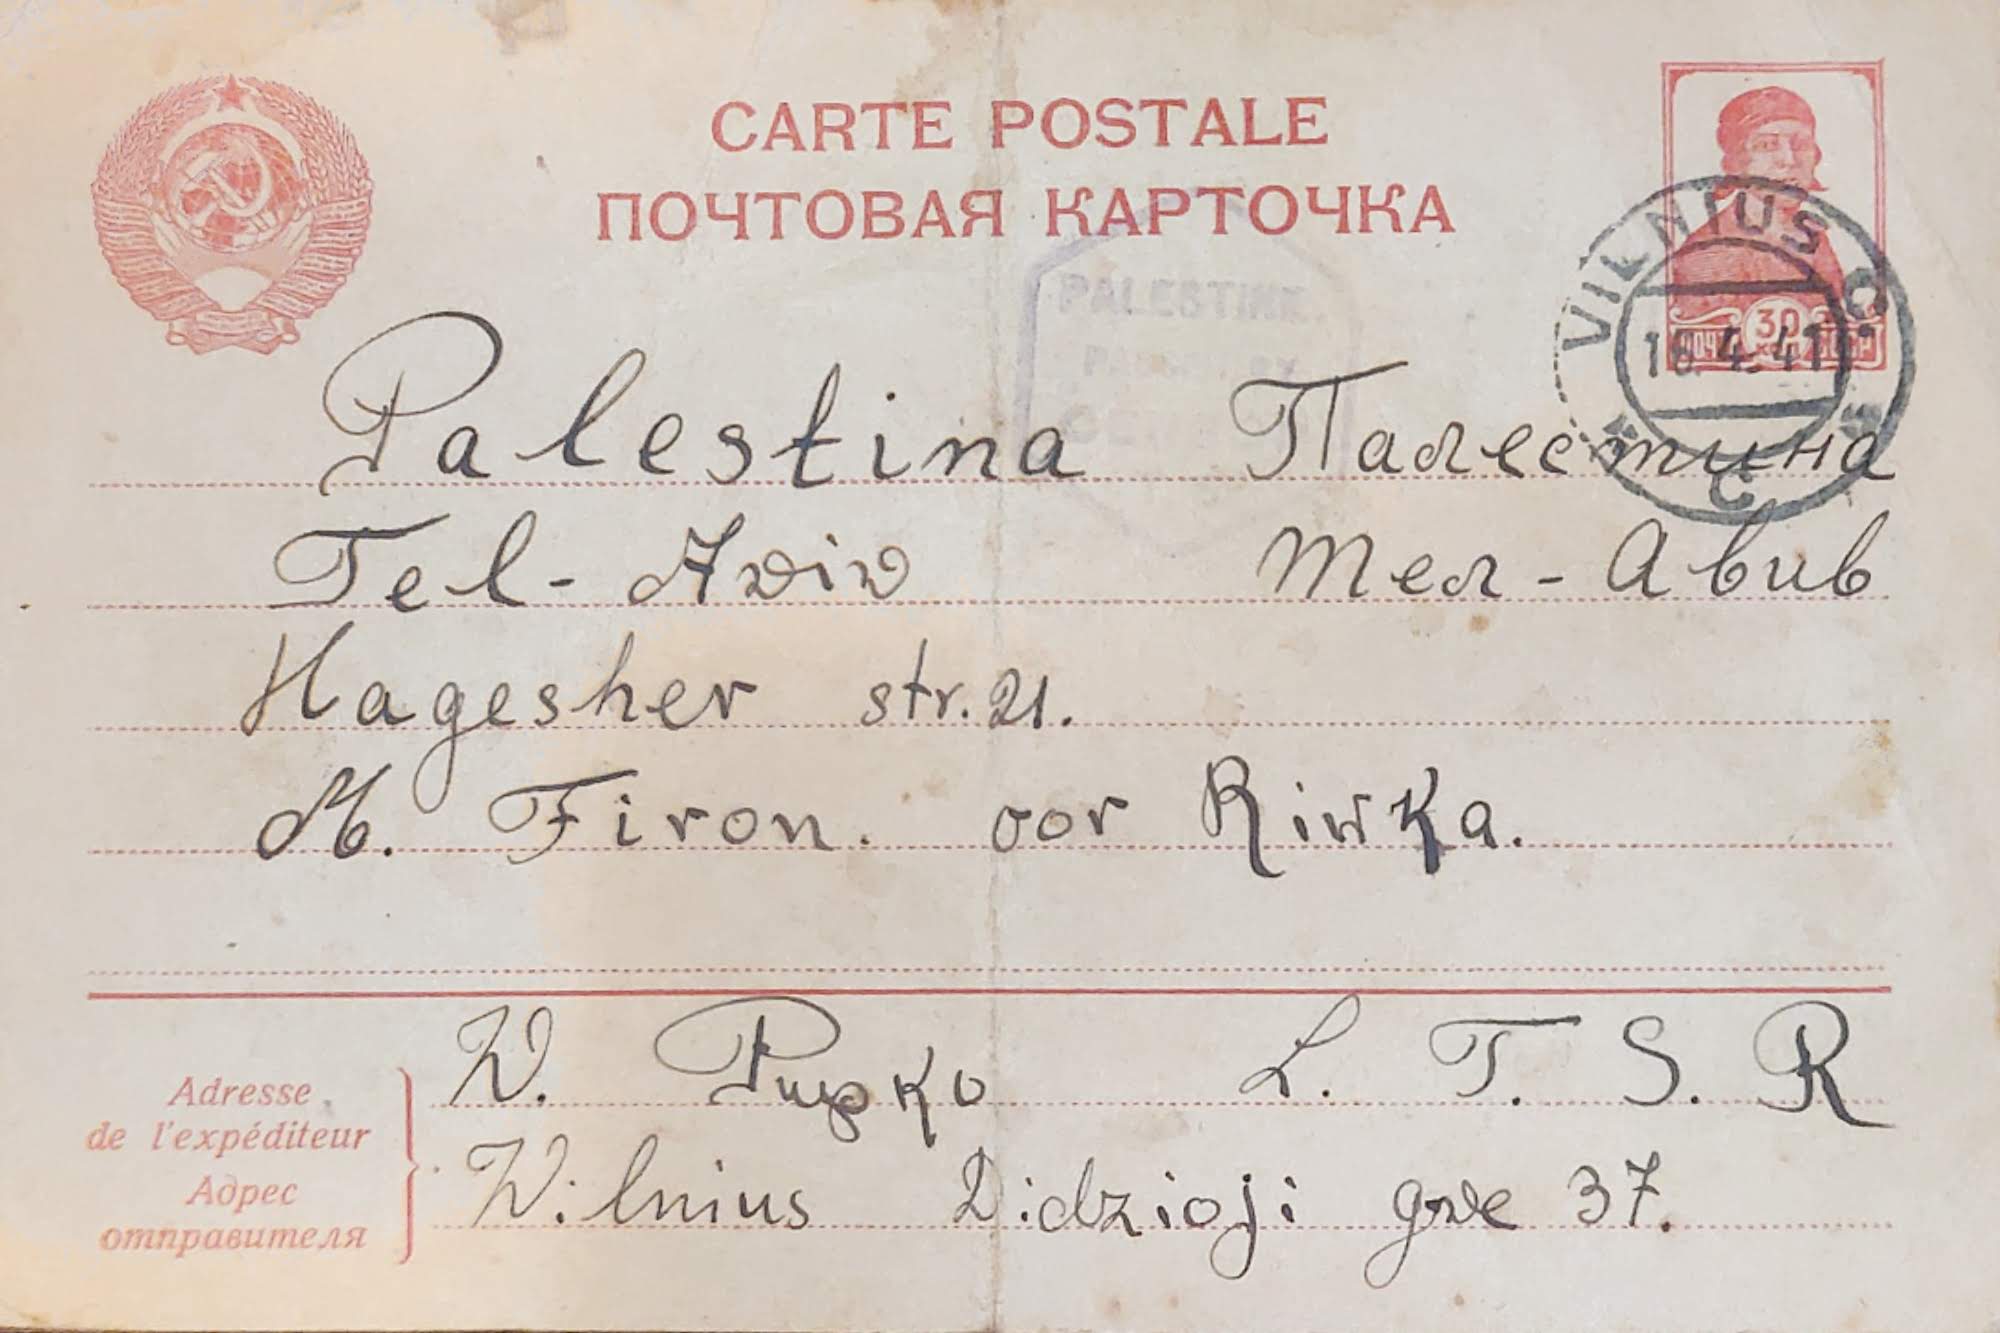 CARTE POSTALE
ПОЧТОВАЯ КАРТОЧКА
VILNIUS C.
16.4.41
C
30
PALESTINE.
Palestina Палестина
Tel-Aviv Тел-Авив
Hagesher str. 21.
M. Firon. oor Riwka.
W. Pupko L. T. S. R
Wilnius Didzioji gve 37.
Adresse
de l'expéditeur
Адрес
отправителя